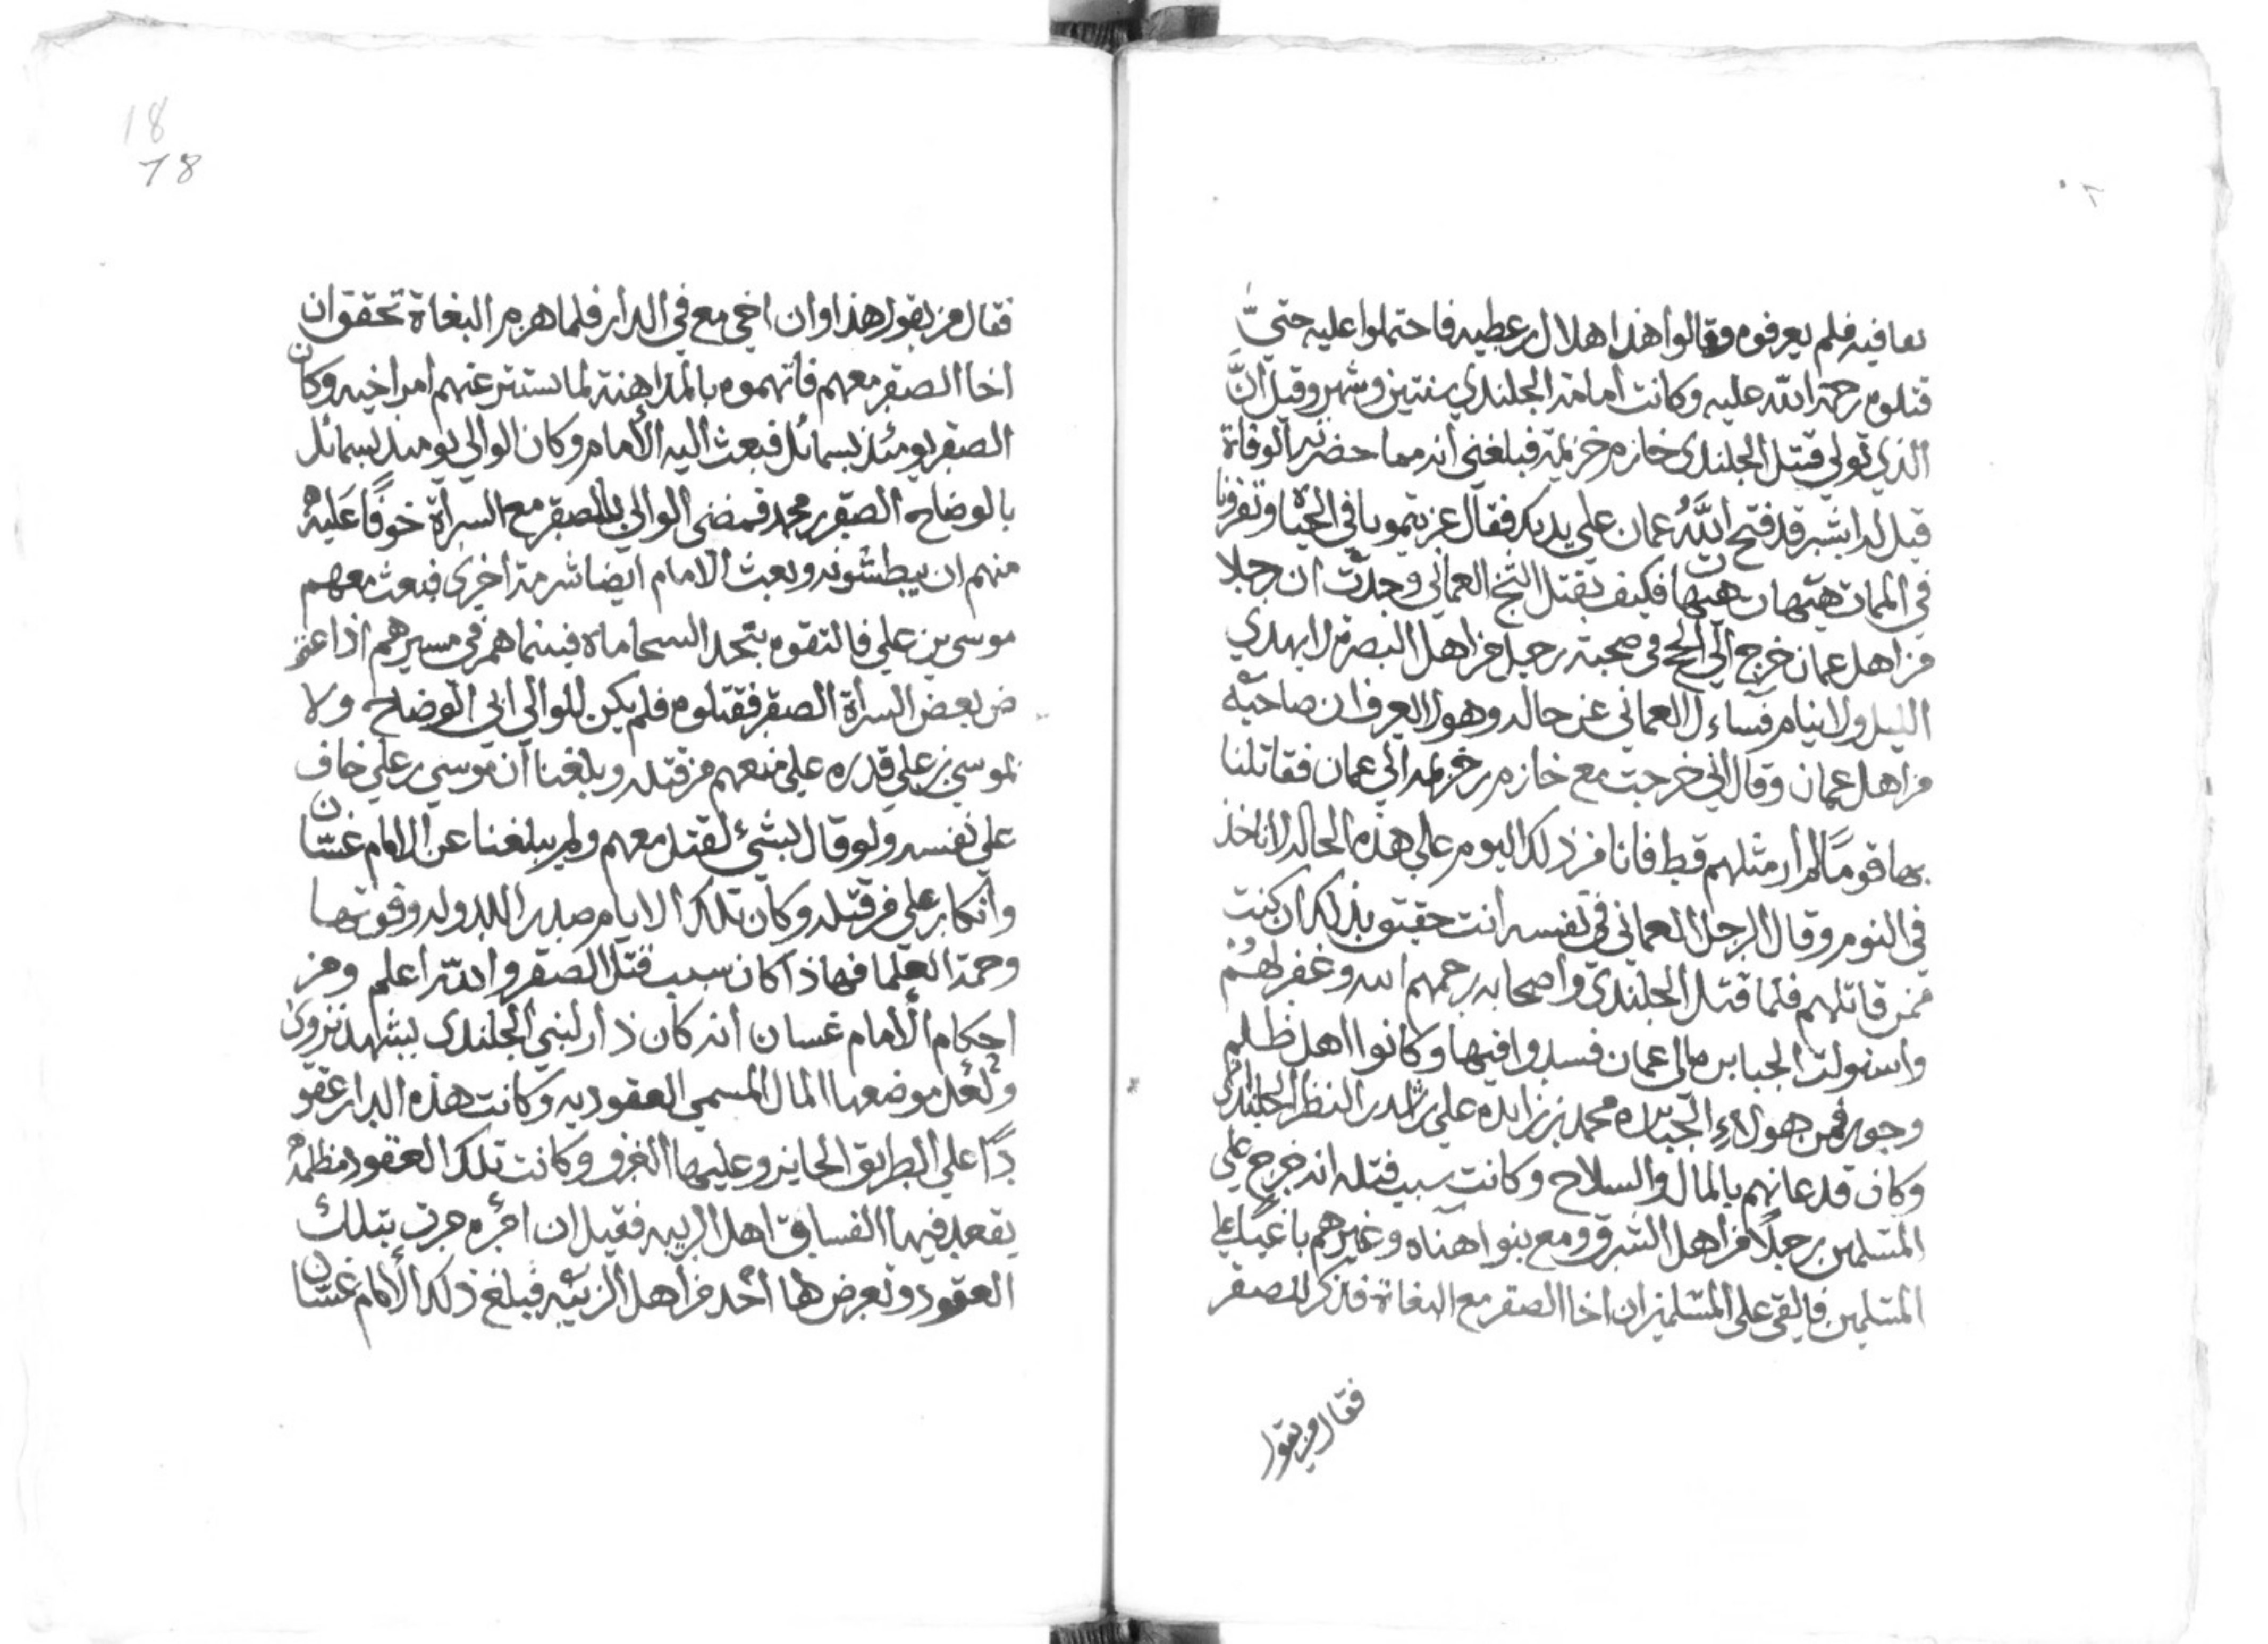 بعافيه فلم يعرفوه وقالوا هذا هلال بن عطيه فاحتملوا عليه حتيّ
قتلوه رحمة الله عليه وكانت امامة الجلندي سنتين وشهر وقيل انَّ
الذي تولي قتل الجلندى خازم بن خزيمة فبلغني انه مما حضرته الوفاة
قيل له ابشر قد فتح اللهُ عمان علي يديك فقال عزيتمونا في الحياة وتعزونا
في الممات هيهات هيهات فكيف بقتل الشيخ العماني وجدت ان رجلا
من اهل عمان خرج الي الحج في صحبته رجل من اهل البصره لا يهدي
الليل ولا ينام فساءل العماني عن حاله وهو لا يعرف ان صاحبه
من اهل عمان وقال اني خرجت مع خازم بن خزيمه الي عمان فقاتلنا
بها قومًا لم ار مثلهم قط فانا من ذلك اليوم علي هذه الحاله لا ناخذ
في النوم وقال الرجل العماني في نفسه انت حقيق بذلك ان كنت
ممن قاتلهم فلما قتل الجلندي واصحابه رحمهم الله وغفر لهم
واستولت الجبابره على عمان فسدوا فيها وكانوا اهل ظلم
وجور فمن هولاء الجبابره محمد بن زايده علي راشد بن النظر الجلندي
وكان قد عانهم بالمال والسلاح وكانت سبب قتله انه خرج علي
المسلمين رجلًا من اهل الشرق ومع بنوا هناه وغيرهم باغيًا علي
المسلمين فالقى على المسلمين ان اخا الصقر مع البغاة فذكر للصقر
فقال من يقول
18
78
فقال من يقول هذا وان اخي مع في الدار فلما هزم البغاة تحقق ان
اخا الصقر معهم فاتهموه بالمداهنة لما يستتر عنهم امر اخيه وكان
الصقر يومئذ بسمائل فبعث اليه الأمام وكان الوالي يوميذ بسمائل
بالوضاح الصقر بن محمد فمضى الوالي بالصقر مع السراة خوفًا عليهُ
منهم ان يبطشونه وبعث الامام ايضا شرمة اخرى فبعث معهم
موسى بن علي فالتقوه بنجد السحاماة فبينما هم في مسيرهم اذا عتر
ض بعض السراة الصقر فقتلوه فلم يكن للوالي ابي الوضاح ولا
لموسي بن علي قدره علي منعهم من قتله وبلغنا ان موسي بن علي خاف
علي نفسه ولو قال بشيء لقتل معهم ولم يبلغنا عن الامام غسّان
وانكار علي من قتله وكان تلك الايام صدر الدوله وقوتها
وحمة العلما فهاذا كان سبب قتل الصقر والله اعلم ومن
احكام الأمام غسان انه كان دار لبني الجلندى بشهد نزوى
ولعل موضعها المال المسمي العقوديه وكانت هذه الدار عقو
دًا علي الطريق الجايز وعليها الغرف وكانت تلك العقود مظلمهُ
يقعد فيها الفساق اهل الريبه فقيل ان امرءه مرت بتلك
العقود وتعرض لها احد من اهل الريبه فبلغ ذلك الأمام غسّان